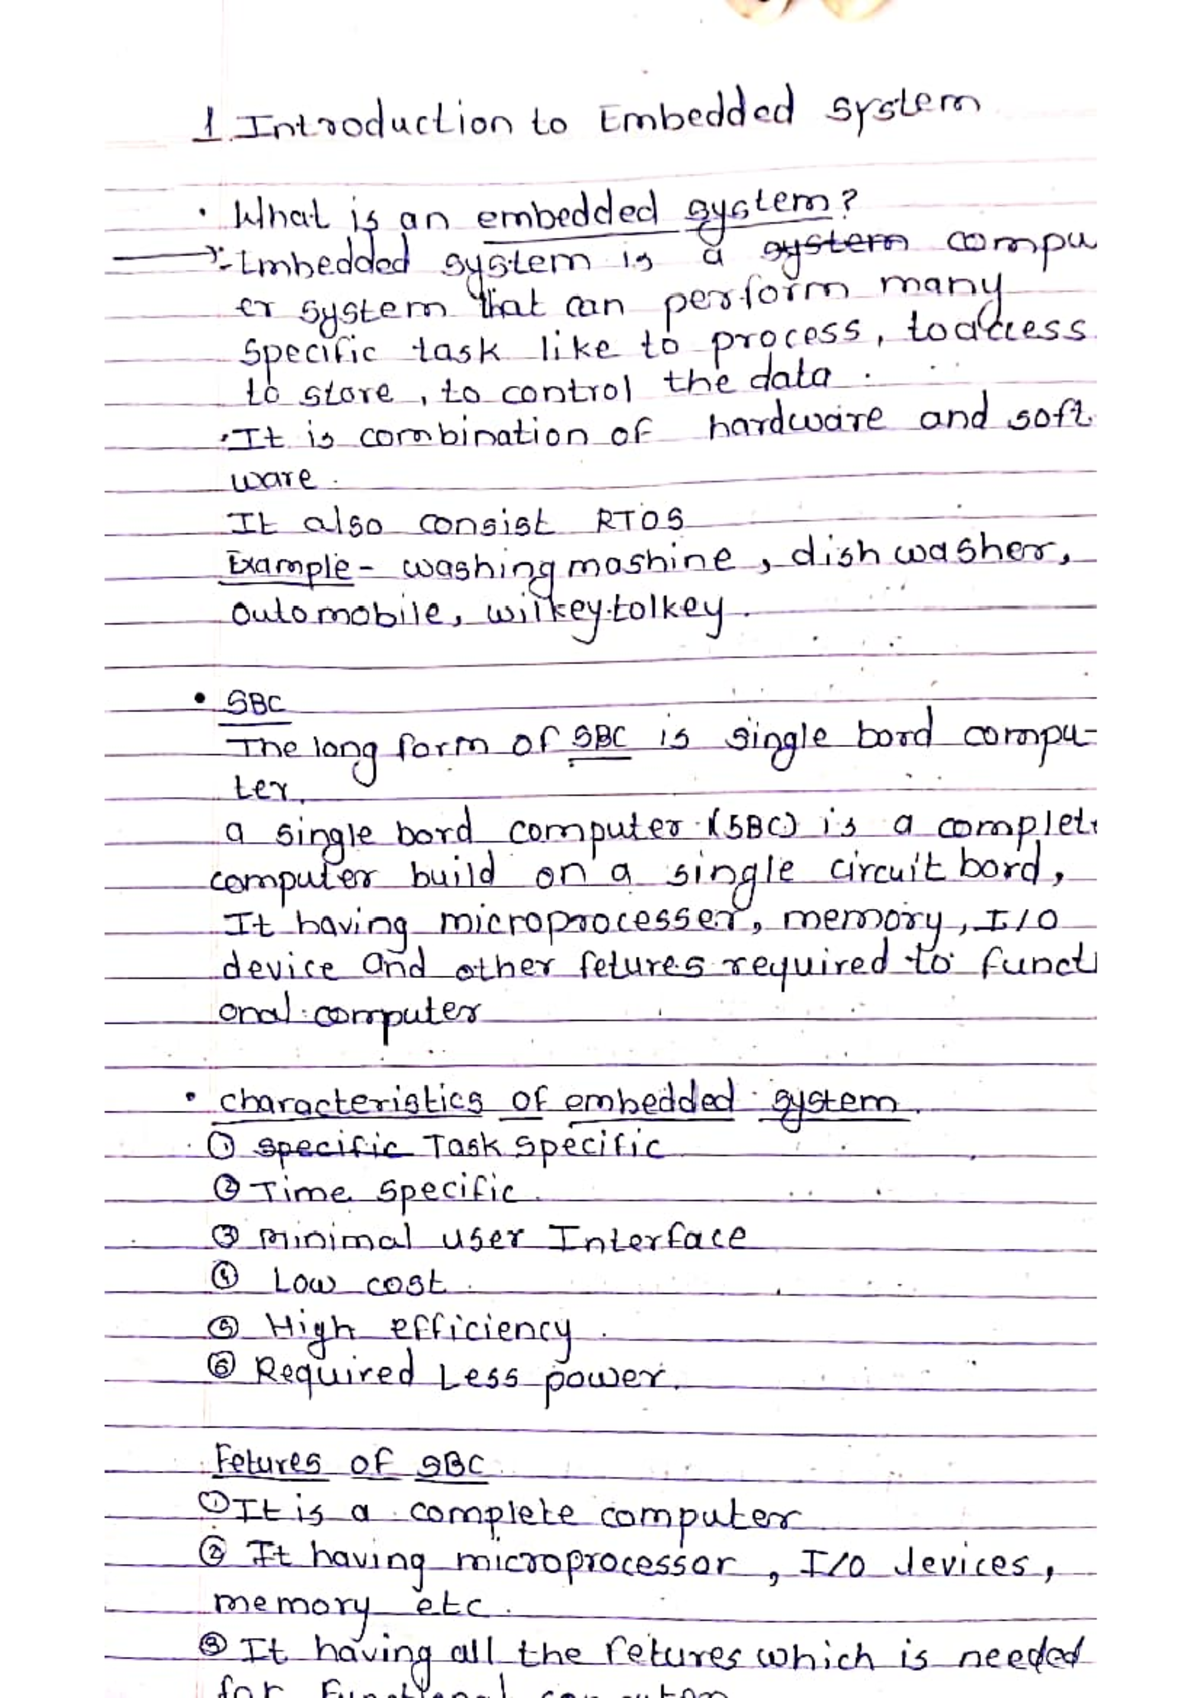 1. Introduction to Embedded system
• What is an embedded system?
→ :- Embedded system is a system compu
er system that can perform many
specific task like to process, to access
to store, to control the data.
• It is combination of hardware and soft
ware.
It also consist RTOS
Example - washing moshine, dish washer,
automobile, wilkey-tolkey.
• SBC
The long form of SBC is single bord compu-
ter.
a single bord computer (SBC) is a complet
computer build on a single circuit bord,
It having microprocesser, memory, I/O
device and other fetures required to functi
onal computer
• characteristics of embedded system.
① specific Task specific
② Time specific.
③ minimal user Interface
④ Low cost.
⑤ High efficiency.
⑥ Required Less power.
Fetures of SBC
① It is a complete computer
② It having microprocessor, I/O devices,
memory etc.
③ It having all the fetures which is needed
for functional computer